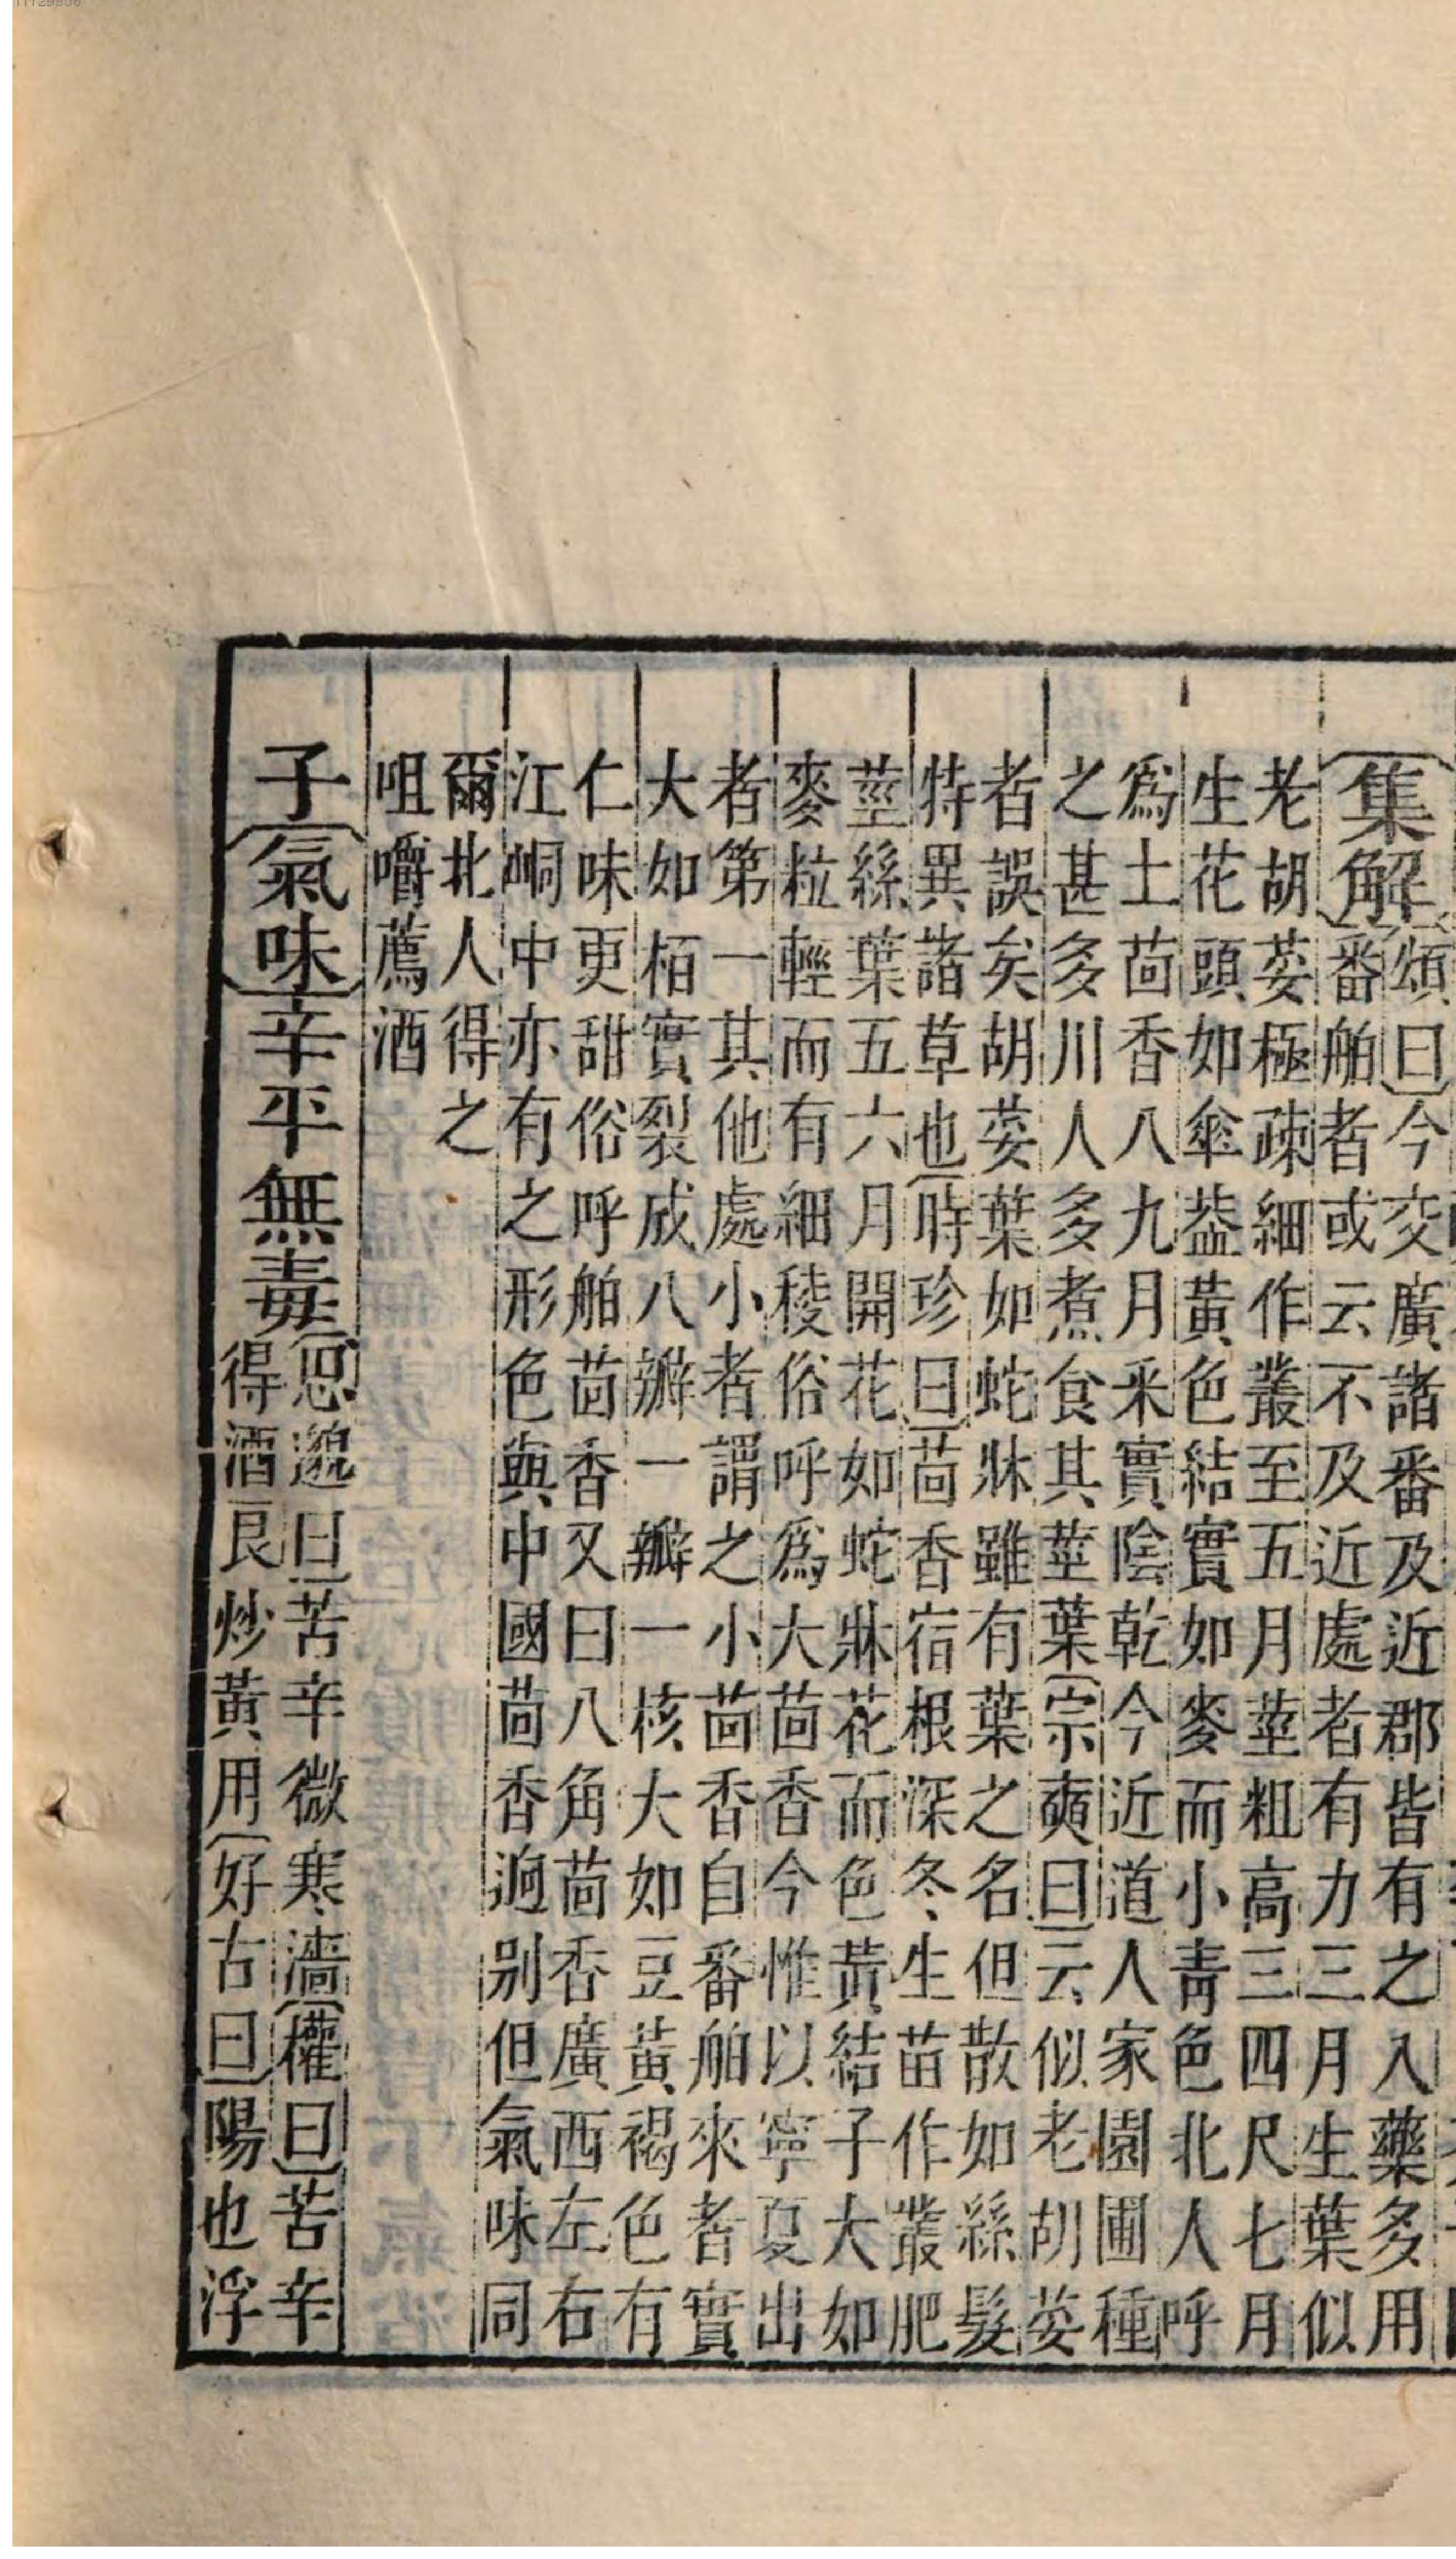 集解
頌曰今交廣諸番及近郡皆有之入藥多用
番舶者或云不及近處者有力三月生葉似
老胡荽極疎細作叢至五月莖粗高三四尺七月
生花頭如傘葢黃色結實如麥而小青色北人呼
爲土茴香八九月采實陰乾今近道人家園圃種
之甚多川人多煮食其莖葉宗奭曰云似老胡荽
者誤矣胡荽葉如蛇牀雖有葉之名但散如絲髮
特異諸草也時珍曰茴香宿根深冬生苗作叢肥
莖絲葉五六月開花如蛇牀花而色黃結子大如
麥粒輕而有細稜俗呼爲大茴香今惟以寧夏出
者第一其他處小者謂之小茴香自番舶來者實
大如栢實裂成八瓣一瓣一核大如豆黃褐色有
仁味更甜俗呼舶茴香又曰八角茴香廣西左右
江峒中亦有之形色與中國茴香迥别但氣味同
爾北人得之
咀嚼薦酒
子氣味辛平無毒
思邈曰苦辛微寒濇權曰苦辛
得酒良炒黃用好古曰陽也浮